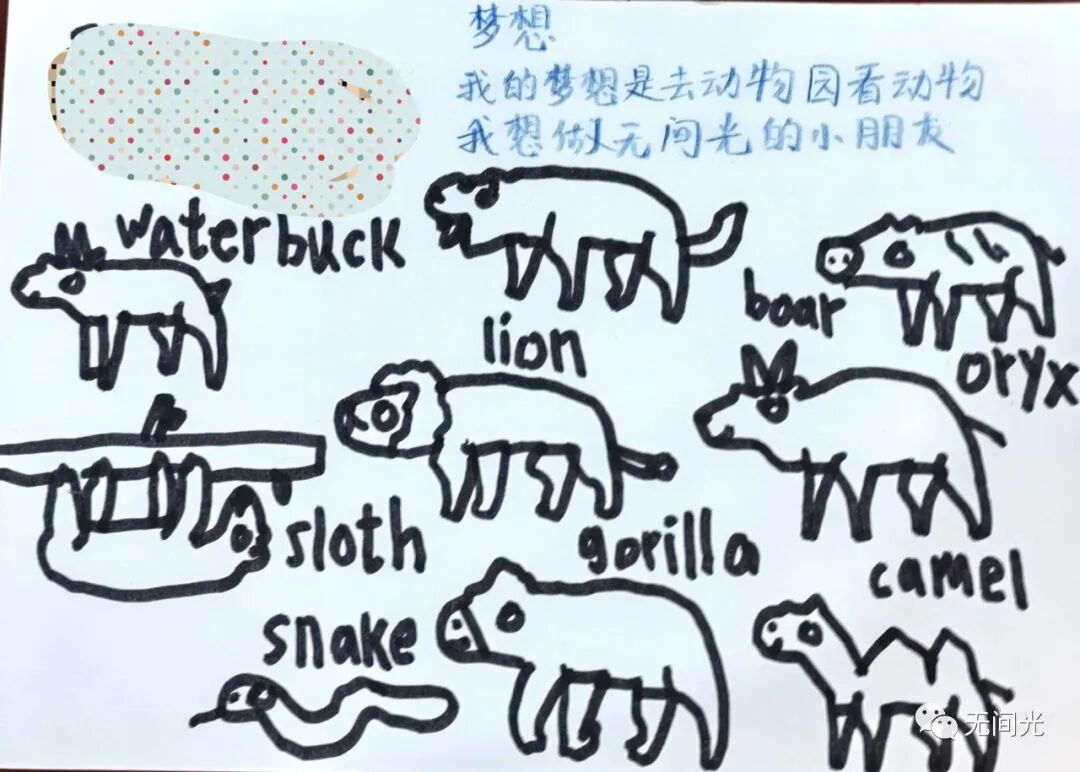 梦想
我的梦想是去动物园看动物
我想做无间光的小朋友
waterbuck
boar
lion
oryx
sloth
gorilla
camel
snake
无间光